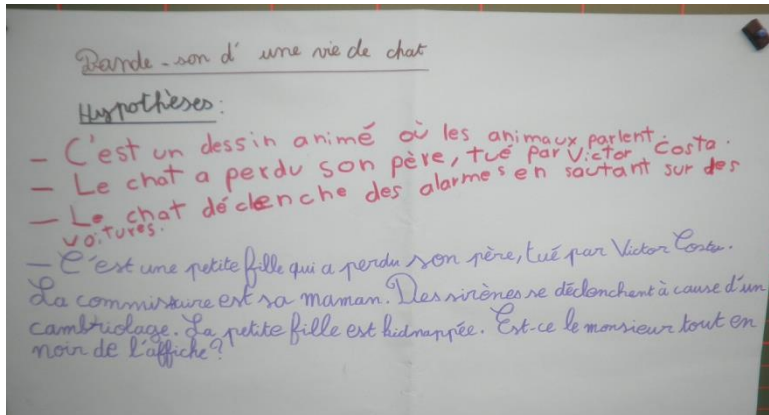 Bande-son d'une vie de chat
Hypothèses:
- C'est un dessin animé où les animaux parlent.
- Le chat a perdu son père, tué par Victor Costa.
- Le chat déclenche des alarmes en sautant sur des
voitures.
- C'est une petite fille qui a perdu son père, tué par Victor Costa.
La commissaire est sa maman. Des sirènes se déclenchent à cause d'un
cambriolage. La petite fille est kidnappée. Est-ce le monsieur tout en
noir de l'affiche?